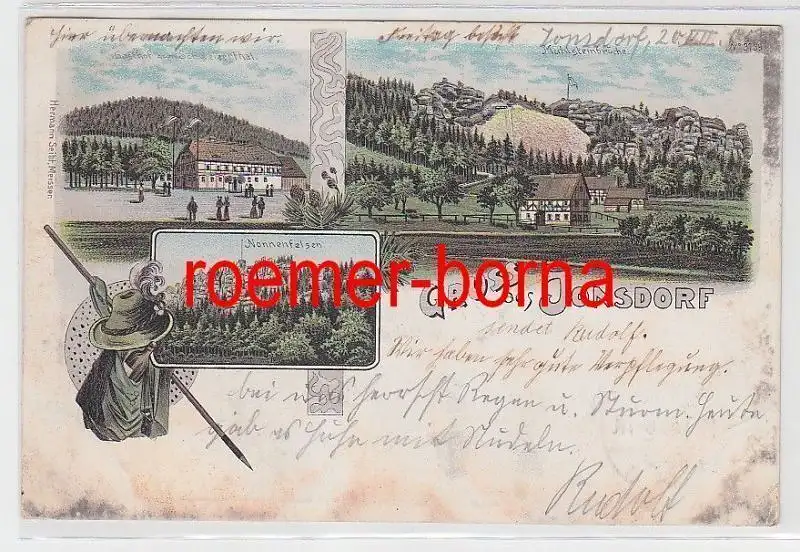 hier übernachten wir.
Freitag
Jonsdorf, 20
Mühlsteinbrüche.
No 3759
Hermann Seibt, Meissen
Nonnenfelsen
roemer-borna
GRUSS aus JONSDORF
sendet Rudolf.
Wir haben sehr gute Verpflegung.
bei uns herrscht Regen u. Sturm. Heute
gab es Huhn mit Nudeln.
Rudolf